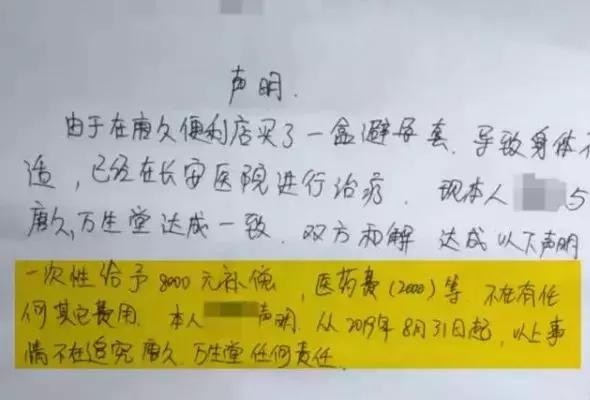 声明.
由于在唐久便利店买了一盒避孕套、导致身体不
适，已经在长安医院进行治疗. 现本人 5
唐久,万生堂达成一致. 双方和解 达成以下声明
一次性给予8000元补偿，医药费(2000)等 不在有任
何其它费用. 本人 声明. 从2019年8月31日起，以上事
情不在追究唐久.万生堂任何责任.